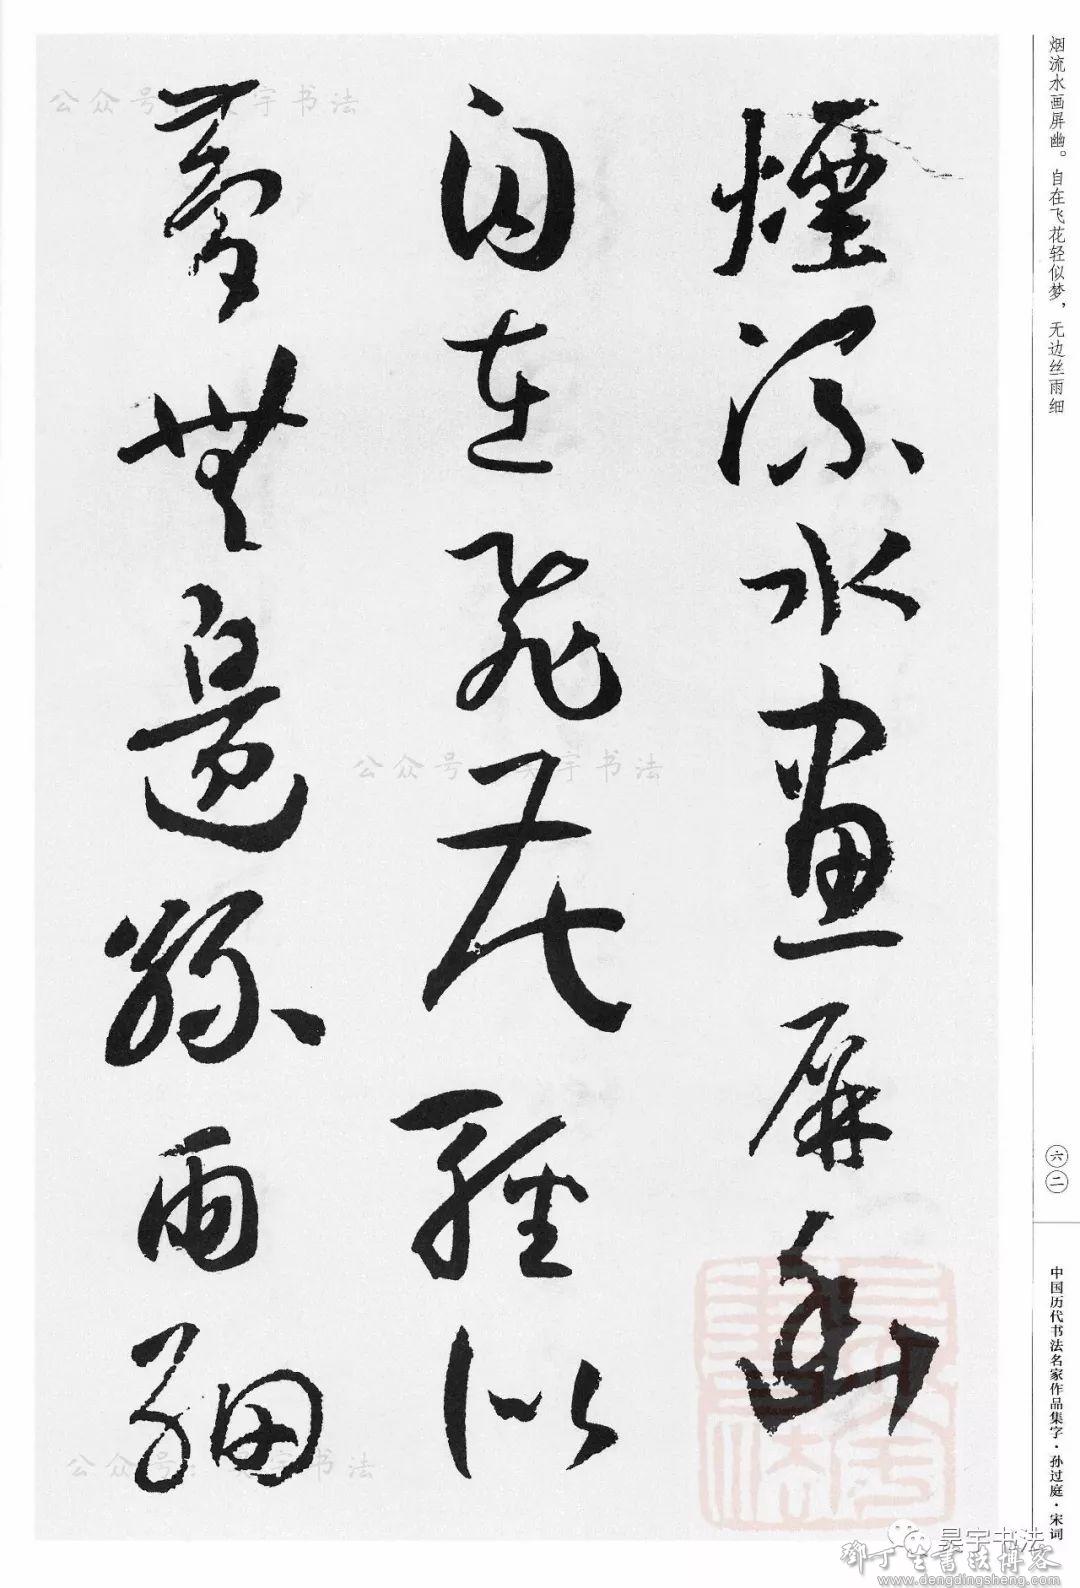 煙流水畫屏幽
自在飛花輕似
夢無邊絲雨細
烟流水画屏幽。自在飞花轻似梦，无边丝雨细
六二
中国历代书法名家作品集字·孙过庭·宋词
公众号：昊宇书法
公众号：昊宇书法
公众号：昊宇书法
昊宇书法
鄧丁生書法博客
www.dengdingsheng.com